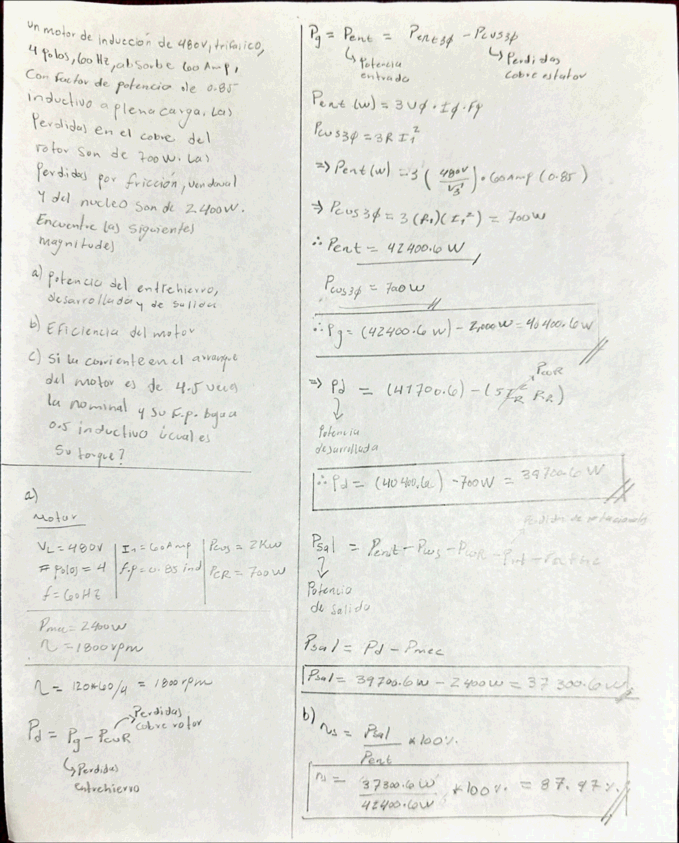 Un motor de inducción de 480V, trifasico,
4 polos, 60 Hz, absorbe 60 Amp,
Con factor de potencia de 0.85
inductivo a plena carga. Las
Perdidas en el cobre del
rotor son de 700W. Las
Perdidas por fricción, ventaval
Y del nucleo son de 2400W.
Encuentre las siguientes
magnitudes
a) potencia del entrehierro,
desarrollada y de salida
b) Eficiencia del motor
c) Si la corriente en el arranque
del motor es de 4.5 veces
la nominal y su F.p. baja a
0.5 inductivo ¿cual es
Su torque?
a)
Motor
VL = 480V | I1 = 60Amp | Pcus = 2KW
# polos = 4 | f.p = 0.85 ind | PCR = 700W
f = 60HZ
Pmec = 2400W
n = 1800rpm
n = 120*60/4 = 1800rpm
Perdidas
cobre rotor
Pd = Pg - PcuR
↳ Perdidas
entrehierro
Pg = Pent = Pent3φ - Pcus3φ
↳ Potencia
entrada
↳ Perdidas
cobre estator
Pent (w) = 3Vφ · Iφ · Fp
Pcus3φ = 3R I1²
⇒ Pent (w) = 3 (480V/√3) · 60Amp (0.85)
⇒ Pcus3φ = 3(R1)(I1²) = 700W
∴ Pent = 42400.6 W
Pcus3φ = 700W
∴ Pg = (42400.6 W) - 2,000W = 40400.6W
PcuR
⇒ Pd = (41700.6) - (3I²R RR)
↓
Potencia
desarrollada
∴ Pd = (40400.6) - 700W = 39700.6 W
Psal = Pent - Pcus - PcuR
↓
Potencia
de salida
Psal = Pd - Pmec
Psal = 39700.6W - 2400W = 37300.6W
b) ns = Psal/Pent *100%
ns = 37300.6W/42400.6W *100% = 87.97%